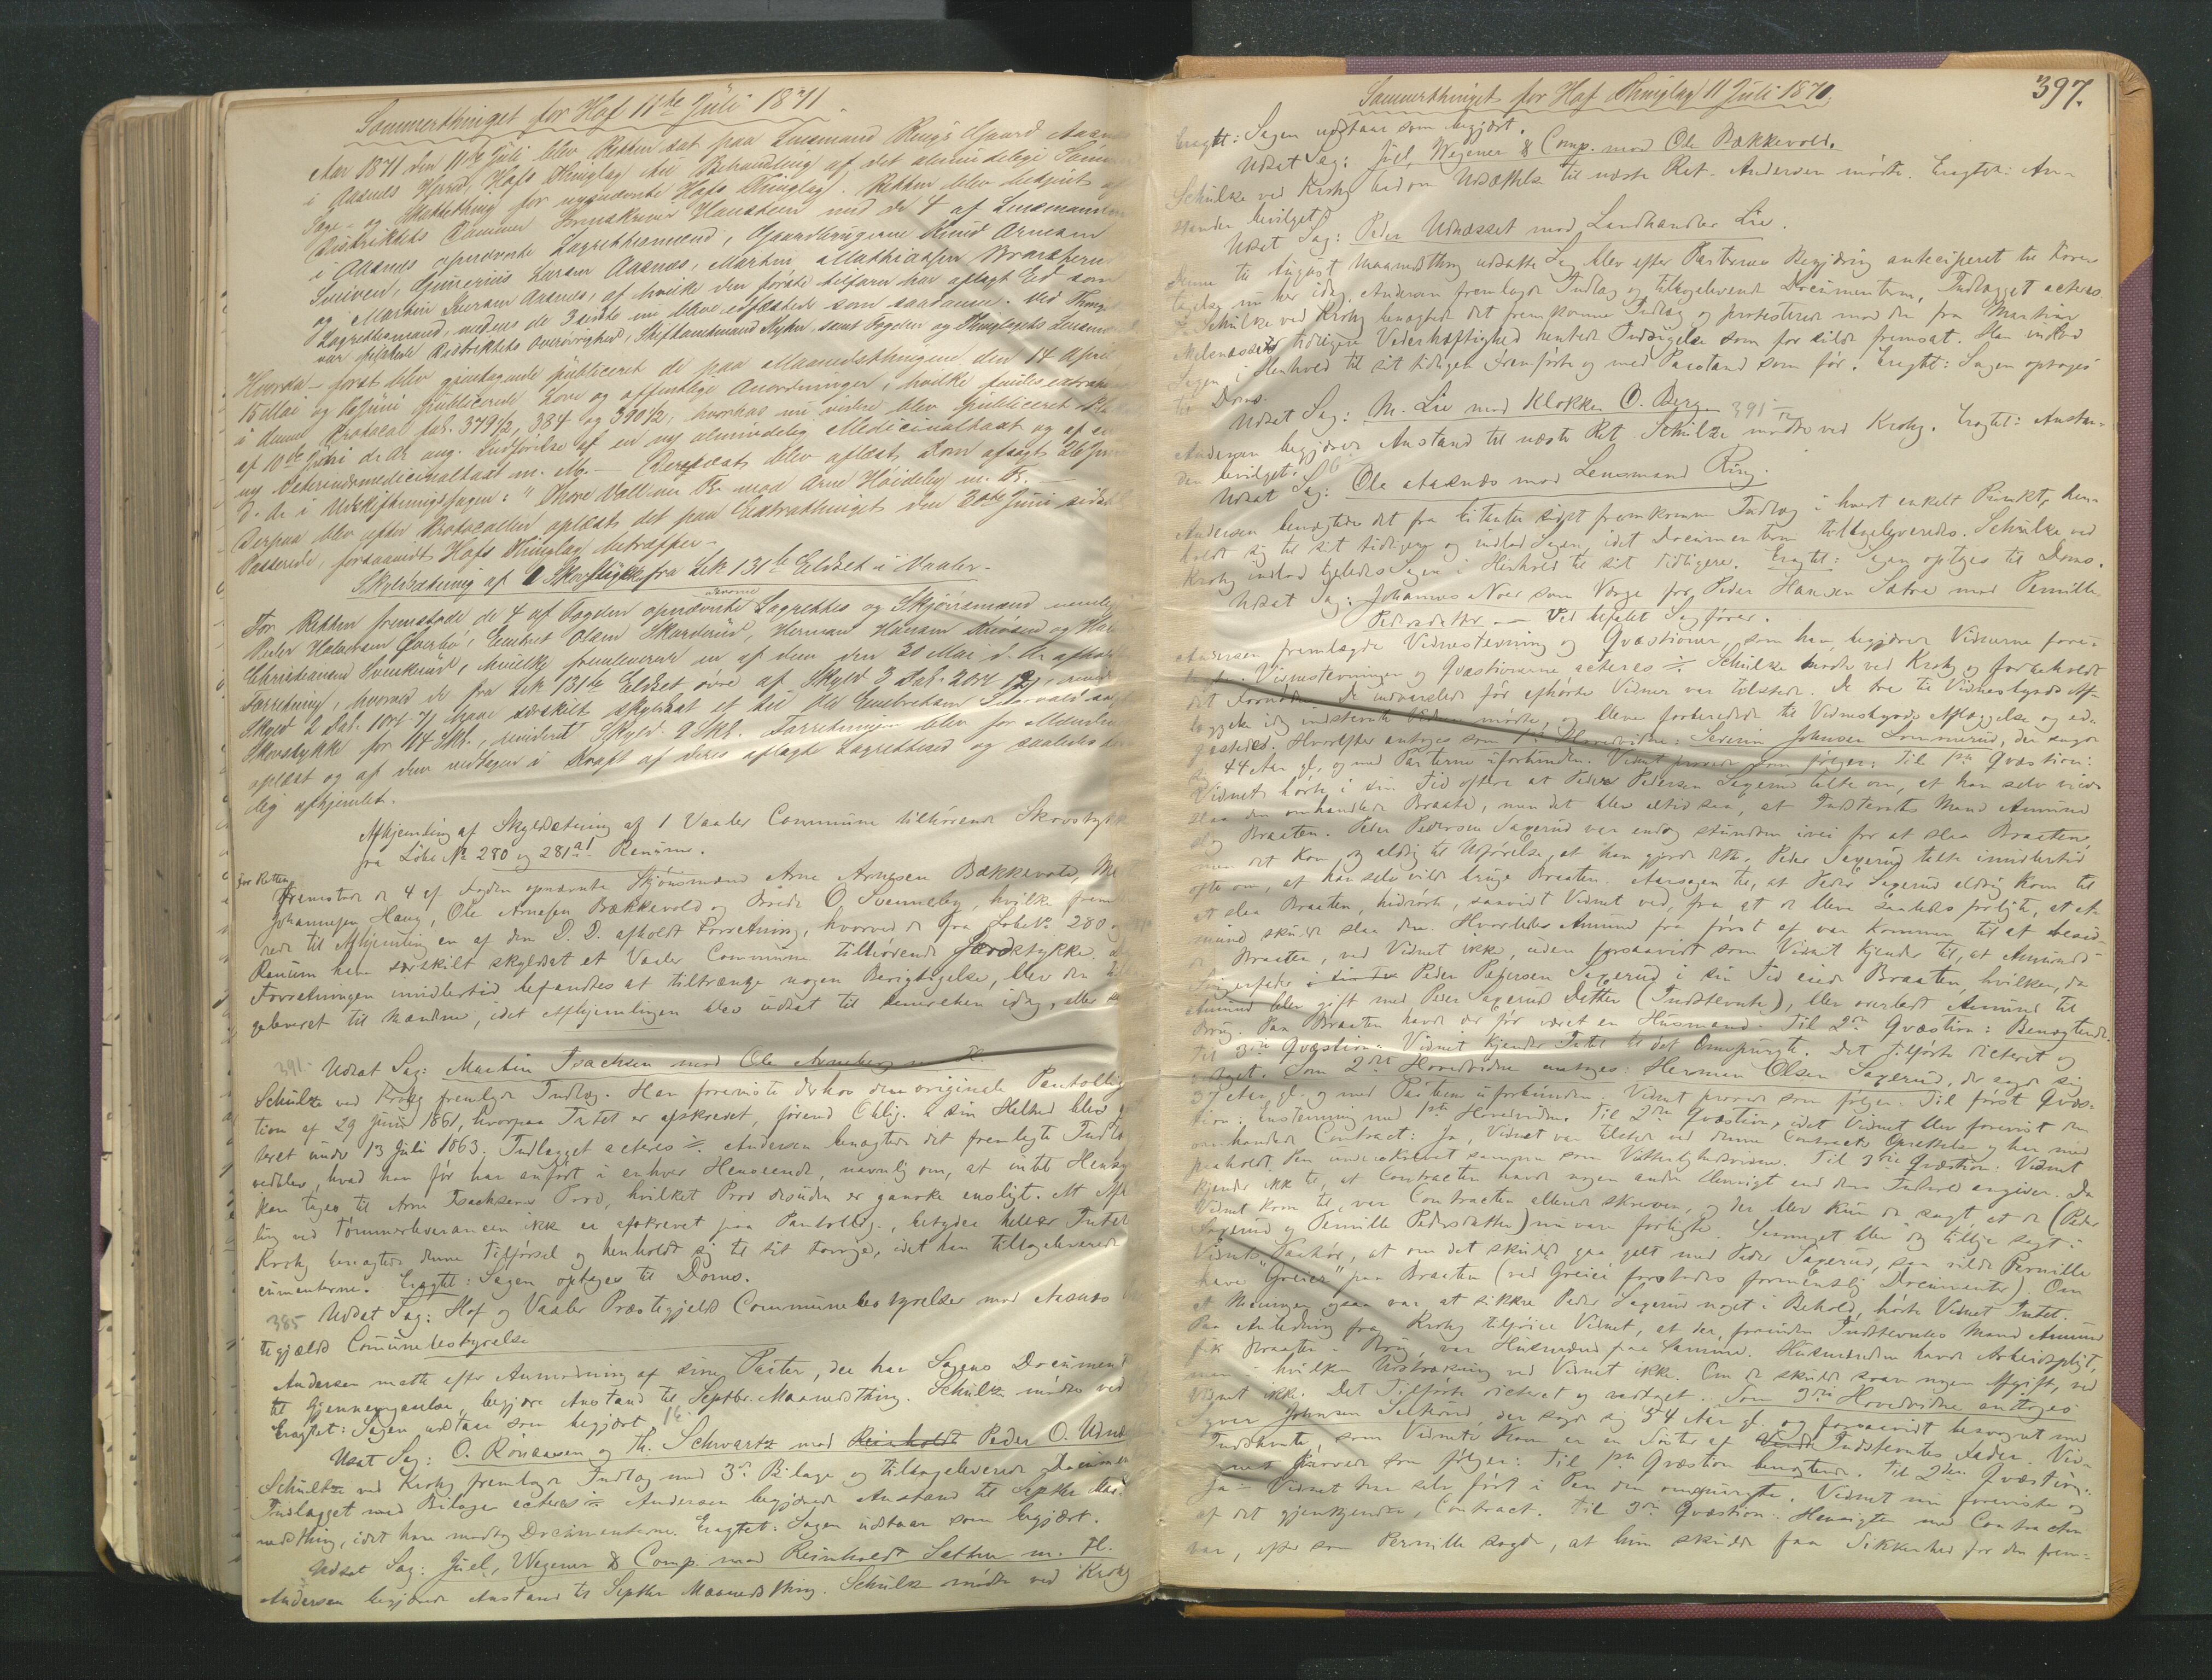 Sommerthinget for Hof 11te Juli 1871.
Aar 1871 den 11te Juli blev Retten sat paa Lensmand Rings Gaard Aasnæs
i Aasnes Herred, Hofs Thinglag til Behandling af det almindelige Sommer
Sage- og Skattething for nysnævnte Hofs Thinglag. Retten blev betjent af
Distriktets Dommer Sorenskriver Hansteen med de 4 af Lensmanden
i Aasnes opnævnte Lagrettesmænd, Gaardbrugerne Knud Arnesen
og Martin Iversen Aasnes, af hvilke den første tilforn har aflagt Ed som
Lagrettesmand, medens de 3 sidste nu bleve edfæstede som saadanne. Ved Thinget
var tilstede Distriktets Overøvrighed, Stiftamtmand samt Fogden og Thinglagets Lensmand
Hvorda først blev gjentagende publiceret de paa Maanedsthingene den 14 April
15 Mai og Juni publicerede Love og offentlige Anordninger, hvilke findes extraherede
i denne Protocol fol. 379½, 384 og 390½; hvorhos nu videre blev publiceret
af 10de Juni d. A. ang. Indførelse af en ny almindelig Medicinaltaxt og af en
ny Veterinærmedicinaltaxt m. M. – Dernæst blev oplæst Dom afsagt 26 Juni
d. A. i Udskiftningssagen: Thore Vall m. Fl. mod Arne Høideby m. Fl. –
Derpaa blev efter Protocollen oplæst det paa Extrathinget den 30te Juni sidst
Passerede, forsaavidt Hofs Thinglag betræffer –
Skyldsætning af 1 Skovstykke fra Løb 131b Eidet i Vaaler –
For Retten fremstode de 4 af Fogden opnævnte Lagrettes og Skjønsmænd nemlig
Peder Halvorsen Embret Olsen Skarderud, Herman Hansen og
Christiansen Svenkerud, hvilke fremleverede en af dem den 30 Mai d. A. afholdt
Forretning, hvorved de fra Løb 131b Eidet øvre af Skyld 3 Dal. 2 Ort 12, revid.
Skyld 2 Dal. 1 Ort have særskilt skyldsat et til Ole Embretsen solgt
Skovstykke for 14 Skl., revideret Skyld 9 Skl. Forretningen blev for Mændene
oplæst og af dem vedtagen i Kraft af deres aflagte Lagrettesed og saaledes
lig afhjemlet.
Afhjemling af Skyldsætning af 1 Vaaler Commune tilhørende Skovstykke
fra Løbe No 280 og 281a1 Renaum.
for Retten
Fremstod de 4 af Fogden opnævnte Skjønsmænd Arne Arnesen Bækkevold,
Johannesen Haug, Ole Arnesen Bækkevold og Brede O. Svenneby, hvilke frem
rede til Afhjemling en af dem D. D. afholdt Forretning, hvorved de fra Løbe No 280 og
Renaum have særskilt skyldsat et Vaaler Commune tilhørende Jordstykke.
Forretningen imidlertid befandtes at tiltrænge nogen Berigtigelse, blev den til
geleveret til Mændene, idet Afhjemlingen blev udsat til senere hen idag, eller
391.
Udsat Sag: Martin Isachsen mod Ole Arneberg m. Fl.
Schulze ved Krohg fremlagde Indlæg. Han foreviste derhos den originale Pantobliga
tion af 29 Juni 1861, hvorpaa Intet er afskrevet, førend Oblig. i sin Helhed blev
teret under 13 Juli 1863. Indlægget acteres ÷ Andersen benægtede det fremlagte Indlæg
vedblev, hvad han før har anført i enhver Henseende, navnlig om, at intet Hensyn
kan tages til Arne Isachsens Prov, hvilket Prov desuden er ganske ensligt. At Afl
ling ved Tømmerleverancen ikke er afskrevet paa Pantoblig., betyder heller Intet
Krohg benægtede denne Tilførsel og henholdt sig til sit Forrige, idet han tilbageleverede
cumenterne. Eragtet: Sagen optages til Doms.
385
Udsat Sag: Hof og Vaaler Præstegjelds Communebestyrelser mod Aasnes
tegjælds Communebestyrelse
Andersen mødte efter Anmodning af sin Parter, der har Sagens Documenter
til Gjennemgaaelse, begjære Anstand til Septbr. Maanedsthing. Schulze mødte ved
Eragtet: Sagen udstaar som begjært.
Udsat Sag: O. Rönaasen og Th. Schwartz mod Reinholdt Peder O. Udnæs
Schultze ved Krohg fremlagde Indlæg med 3de Bilage og tilbageleverede Documen
Indlægget med Bilager acteres ÷ Andersen begjærede Anstand til Septbr Maa
nedsthing, idet han modtog Documenterne. Eragtet: Sagen udstaar som begjært.
Udsat Sag: Juel, Wegener & Comp. mod Reinholdt Sætre m. Fl.
Andersen begjærede Anstand til Septbr Maanedsthing. Schulze mødte ved Krohg
397.
Sommerthinget for Hof Thinglag 11 Juli 1871.
Eragtet: Sagen udstaar som begjært.
Udsat Sag: Juel, Wegener & Comp. mod Ole Bækkevold.
Schulze ved Krohg bad om Udsættelse til næste Ret. Andersen mødte. Eragtet: An-
standen bevilget.
Udsat Sag: Peder Udnæsset mod Landhandler Lie.
Denne til August Maanedsthing udsatte Sag blev efter Parternes Begjæring anteciperet til Foreta-
gelse nu her idag. Andersen fremlagde Indlæg og tilbageleverede Documenterne, Indlægget acteres
÷ Schulze ved Krohg benægtede det fremkomne Indlæg og protesterede mod den fra Martinus
Melnæssets tidligere Vederhæftighed hentede Indsigelse som for silde fremsat. Han indlod
Sagen i Henhold til sit tidligere Fremførte og med Paastand som før. Eragtet: Sagen optages
til Doms.
Udsat Sag: M. Lie mod Klokker O. Berg 391
Andersen begjærede Anstand til næste Ret. Schulze mødte ved Krohg. Eragtet: Anstan-
den bevilget.
Udsat Sag: Ole Aasnæs mod Lensmand Ring.
Andersen benægtede det fra Citanten sidst fremkomne Indlæg i hvert enkelt Punkt, hen-
holdt sig til sit tidligere og indlod Sagen, idet Documenterne tilbageleveredes. Schulze ved
Krohg indlod ligeledes Sagen i Henhold til sit Tidligere. Eragtet: Sagen optages til Doms.
Udsat Sag: Johannes Noer som Værge for Peder Hansen Sætre mod Pernille
Pedersdatter – Ved befalet Sagfører.
Andersen fremlagde Vidnestevning og Qvæstioner, som han begjærede Vidnerne fore-
lagte. Vidnestevningen og Qvæstionerne acteres ÷ Schulze mødte ved Krohg og forbeholdt
det Fornødne. De indvarslede før afhørte Vidner var tilstede. De tre til Vidnesbyrds Af-
læggelse idag indstevnte Vidner mødte, og bleve forberedede til Vidnesbyrds Aflæggelse og ed-
fæstedes. Hvorefter antoges som 1ste Hovedvidne: Severin Johnsen Sommerud, der sagde
sig 44 Aar gl., og med Parterne uforbunden. Vidnet provede som følger: Til 1ste Qvæstion:
Vidnet hørte i sin Tid oftere at Peder Pedersen Sagerud talte om, at han selv vilde
slaa den omhandlede Braate, men det blev altid saa, at Indstevntes Mand Amund
slog Braaten. Peder Pedersen Sagerud var endog stundom ivei for at slaa Braaten,
men det kom dog aldrig til Udførelse, at han gjorde dette. Peder Sagerud talte imidlertid
ofte om, at han selv vilde bruge Braaten. Aarsagen til, at Peder Sagerud aldrig kom til
at slaa Braaten, hidrørte, saavidt Vidnet ved, fra at de bleve saaledes forligte, at A-
mund skulde slaa den. Hvorledes Amund fra først af var kommen til at besid-
de Braaten, ved Vidnet ikke, uden forsaavidt som Vidnet kjender til, at Amunds
Svigerfader i sin Tid Peder Pedersen Sagerud i sin Tid eiede Braaten, hvilken, da
Amund blev gift med Peder Sageruds Datter (Indstevnte), blev overladt Amund til
Brug. Paa Braaten havde der før været en Husmand. Til 2den Qvæstion: Benægtende.
Til 3die Qvæstion: Vidnet kjender Intet til det Omspurgte. Det Tilførte dicteret og
vedtaget. Som 2det Hovedvidne antoges: Herman Olsen Sagerud, der sagde sig
37 Aar gl. og med Parterne uforbunden. Vidnet provede som følger: Til først Qvæs-
tion: Enstemmig med 1ste Hovedvidne. Til 2den Qvæstion, idet Vidnet blev forevist den
omhandlede Contract: Ja, Vidnet var tilstede ved denne Contracts Oprettelse og har med
paaholdt Pen underskrevet samme som Vitterlighedsvidne. Til 3die Qvæstion: Vidnet
kjender ikke til, at Contracten havde nogen anden Hensigt end dens Indhold angiver. Da
Vidnet kom til, var Contracten allerede skreven, og der blev kun da sagt, at de (Peder
Sagerud og Pernille Pedersdatter) nu vare forligte. Senmget blev dog tillige sagt i
Vidnets Paahør, at om det skulde gaa galt med Peder Sagerud, saa vilde Pernille
have "Greier" paa Braaten (ved Greier forstodes formentlig Documenter). Om
at Meningen ogsaa var, at sikkre Peder Sagerud noget i Behold, hørte Vidnet Intet.
Paa Anledning fra Krohg tilføier Vidnet, at der, forinden Indstevntes Mand Amund
fik Braaten i Brug, var Husmænd paa samme. Husmændene havde Arbeidspligt,
men i hvilken Udstrækning ved Vidnet ikke. Om de skulde svare nogen Afgift, ved
Vidnet ikke. Det Tilførte dicteret og vedtaget. Som 3die Hovedvidne antoges
Syver Johnsen der sagde sig 54 Aar gl. og forsaavidt besvogret med
Indstevnte, som Vidnets Kone er en Søster af Indstevntes Fader. Vid-
net provede som følger: Til 1ste Qvæstion benægtende. Til 2den Qvæstion:
Ja – Vidnet har selv ført i Pen den omspurgte, Vidnet nu foreviste og
af det gjenkjendte, Contract. Til 3die Qvæstion: Hensigten med Contracten
var, efter som Pernille sagde, at hun skulde faa Sikkerhed for den frem-